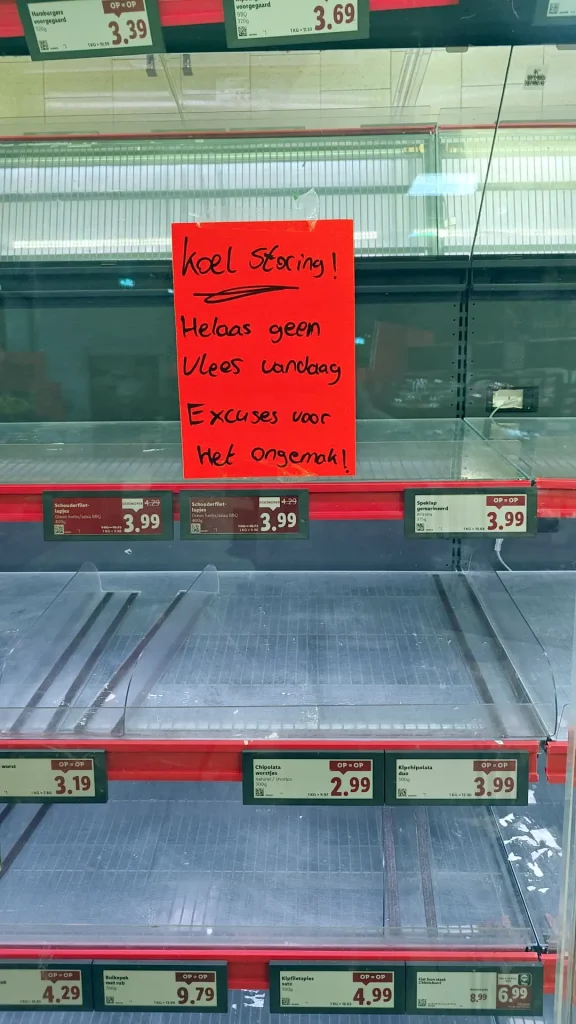 Hamburgers
voorgegaard
OP = OP
3.39
voorgegaard
3.69
Koel Storing!
Helaas geen
Vlees vandaag
Excuses voor
Het ongemak!
Schouderfilet-
lapjes
400g
4.29
3.99
Schouderfilet-
lapjes
400g
4.29
3.99
Speklap
gemarineerd
OP = OP
3.99
worst
OP = OP
3.19
Chipolata
worstjes
300g
OP = OP
2.99
Kipchipolata
duo
OP = OP
3.99
OP = OP
4.29
OP = OP
9.79
Kipfiletlapjes
OP = OP
4.99
8.99
6.99